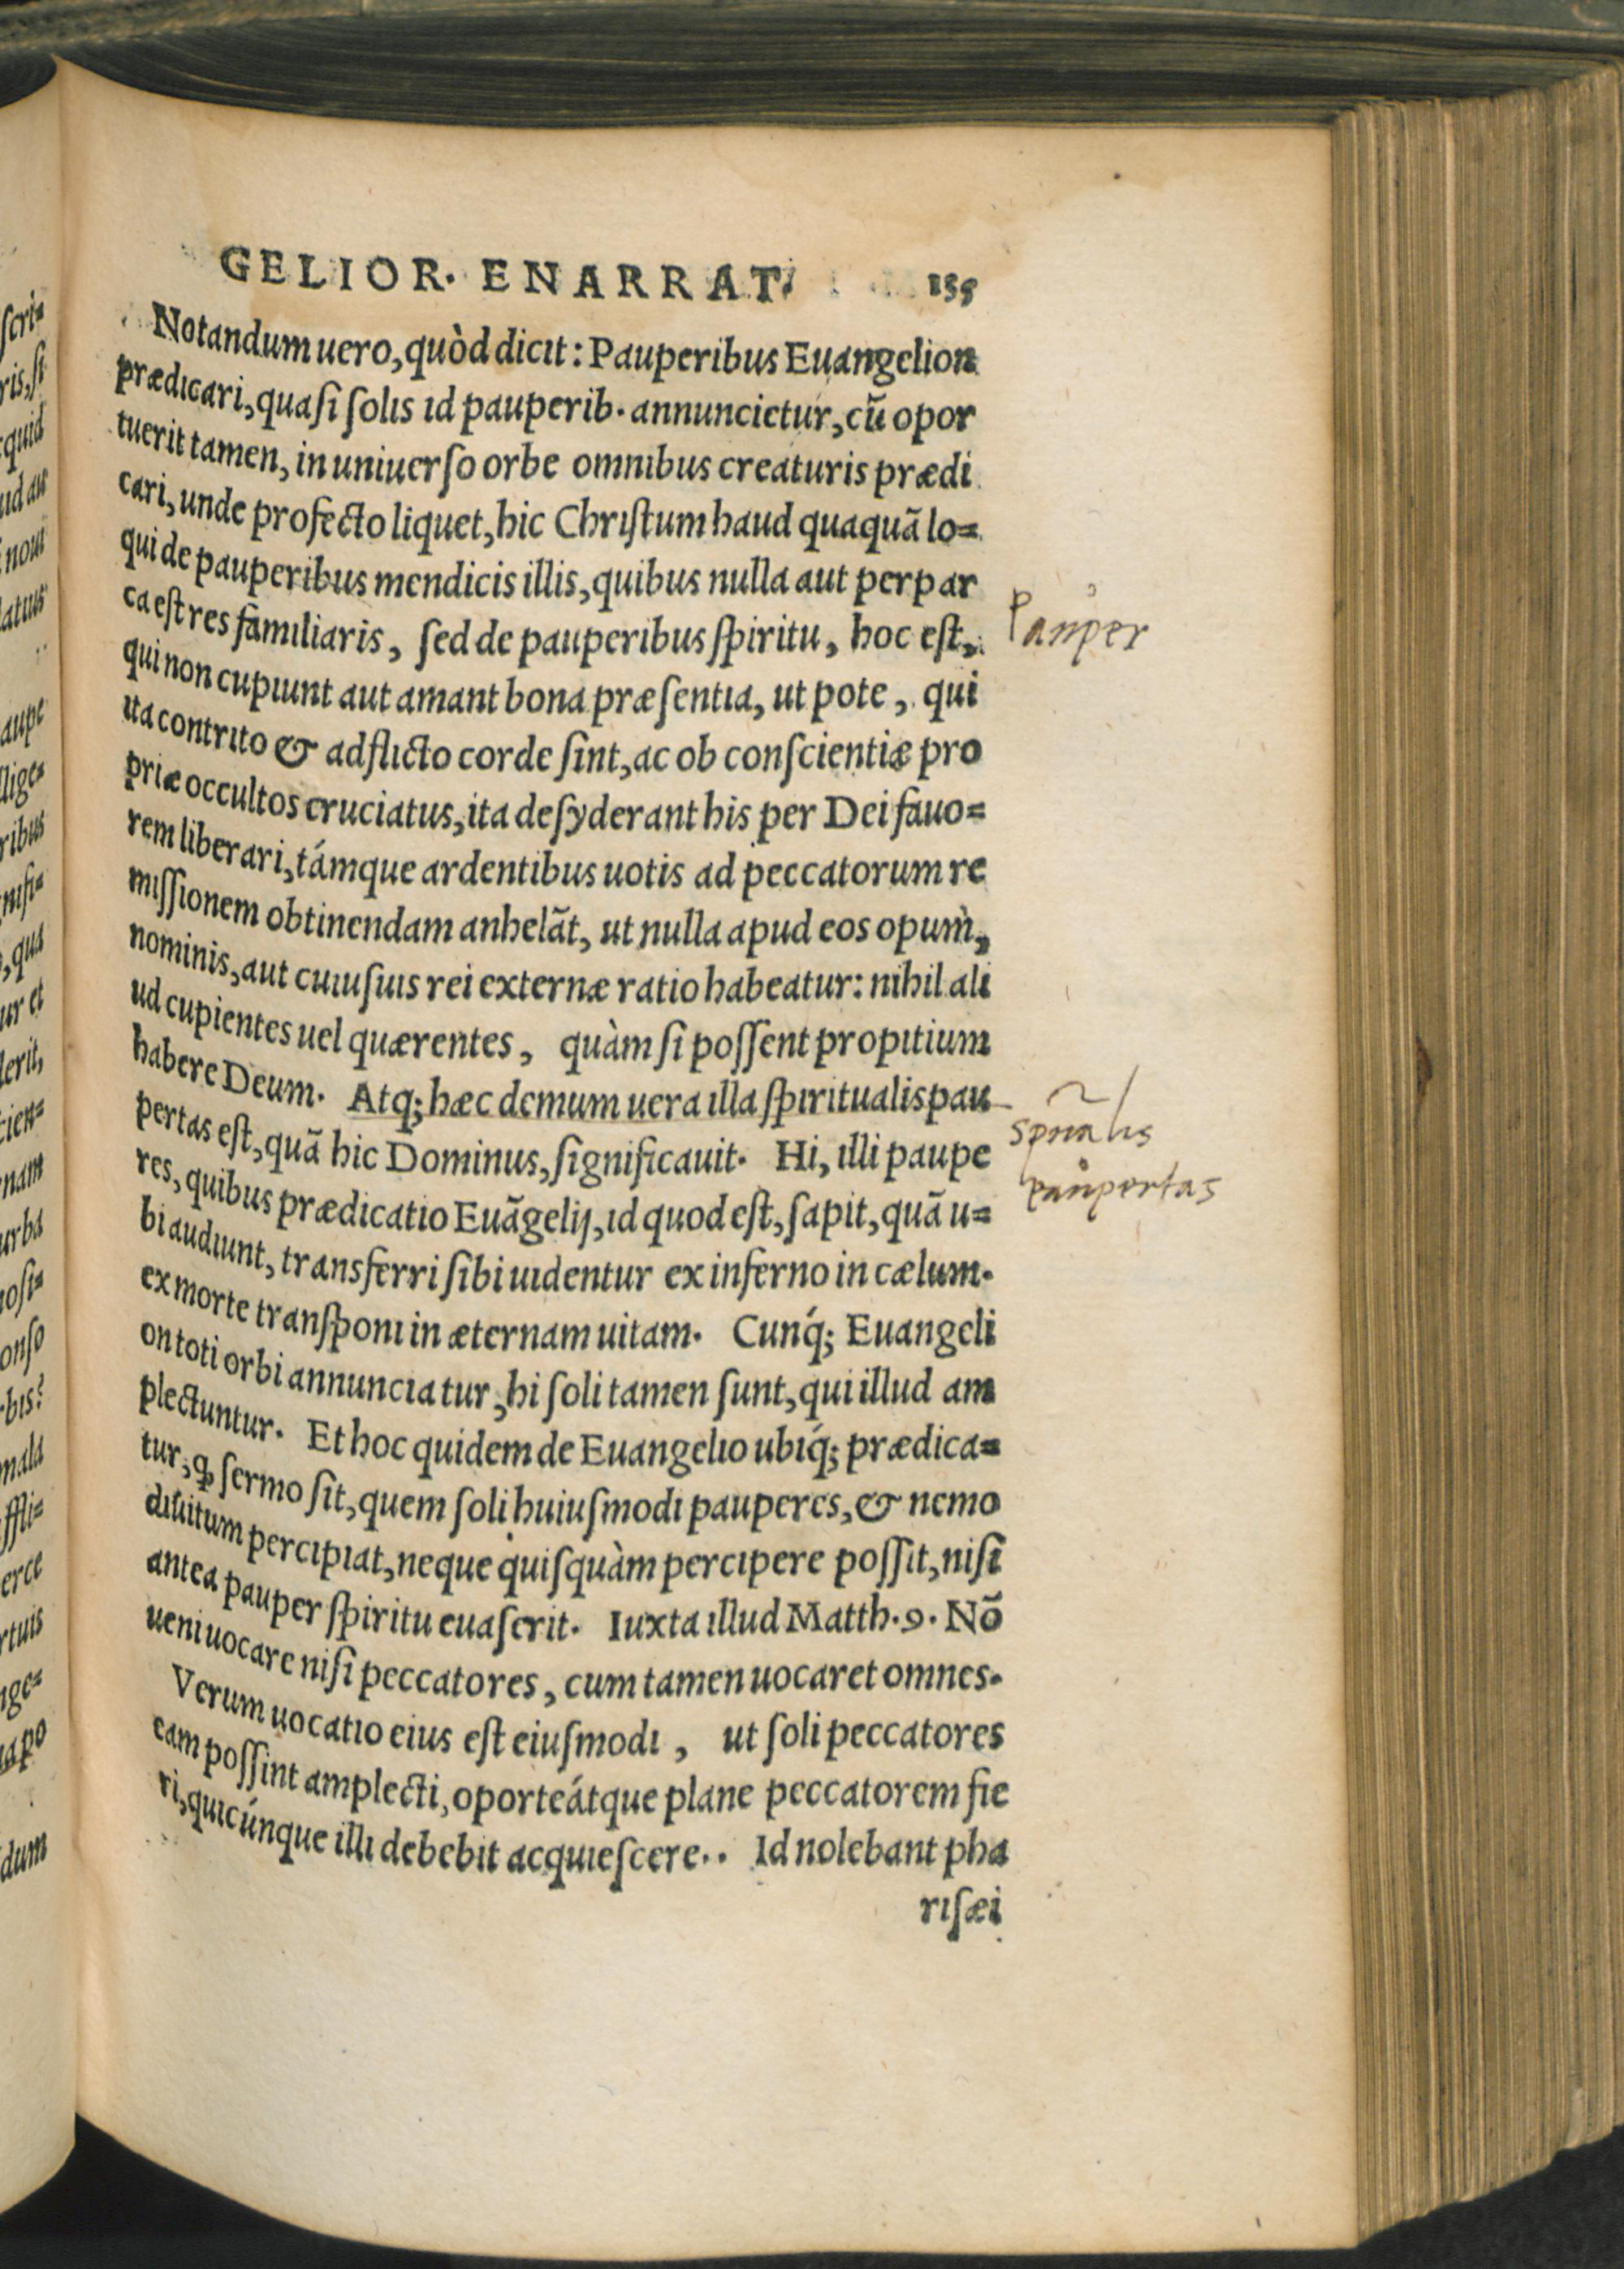 GELIOR. ENARRAT. 155
Notandum uero, quòd dicit: Pauperibus Euangelion
prædicari, quasi solis id pauperib. annuncietur, cũ opor
tuerit tamen, in uniuerso orbe omnibus creaturis prædi
cari, unde profecto liquet, hic Christum haud quaquã lo=
qui de pauperibus mendicis illis, quibus nulla aut perpar
ca est res familiaris, sed de pauperibus spiritu, hoc est,
Pauper
qui non cupiunt aut amant bona præsentia, ut pote, qui
ita contrito & adflicto corde sint, ac ob conscientiæ pro
priæ occultos cruciatus, ita desyderant his per Dei fauo=
rem liberari, támque ardentibus uotis ad peccatorum re
missionem obtinendam anhelãt, ut nulla apud eos opum,
nominis, aut cuiusuis rei externæ ratio habeatur: nihil ali
ud cupientes uel quærentes, quàm si possent propitium
habere Deum. Atq; hæc demum uera illa spiritualis pau
pertas est, quã hic Dominus, significauit. Hi, illi paupe
spũalis
paupertas
res, quibus prædicatio Euãgelij, id quod est, sapit, quã u=
bi audiunt, transferri sibi uidentur ex inferno in cælum.
ex morte transponi in æternam uitam. Cunq́; Euangeli
on toti orbi annunciatur, hi soli tamen sunt, qui illud am
plectuntur. Et hoc quidem de Euangelio ubiq́; prædica=
tur, ꝙ sermo sit, quem soli huiusmodi pauperes, & nemo
diuitum percipiat, neque quisquàm percipere possit, nisi
antea pauper spiritu euaserit. Iuxta illud Matth. 9. Nõ
ueni uocare nisi peccatores, cum tamen uocaret omnes.
Verum uocatio eius est eiusmodi, ut soli peccatores
eam possint amplecti, oporteátque plane peccatorem fie
ri, quicúnque illi debebit acquiescere.. Id nolebant pha
risæi